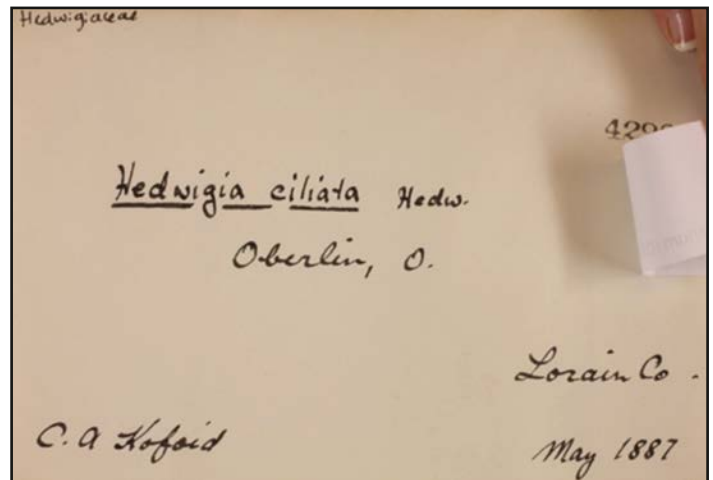 Hedwigiaceae
Hedwigia ciliata Hedw.
Oberlin, O.
Lorain Co.
C. A Kofoid
May 1887